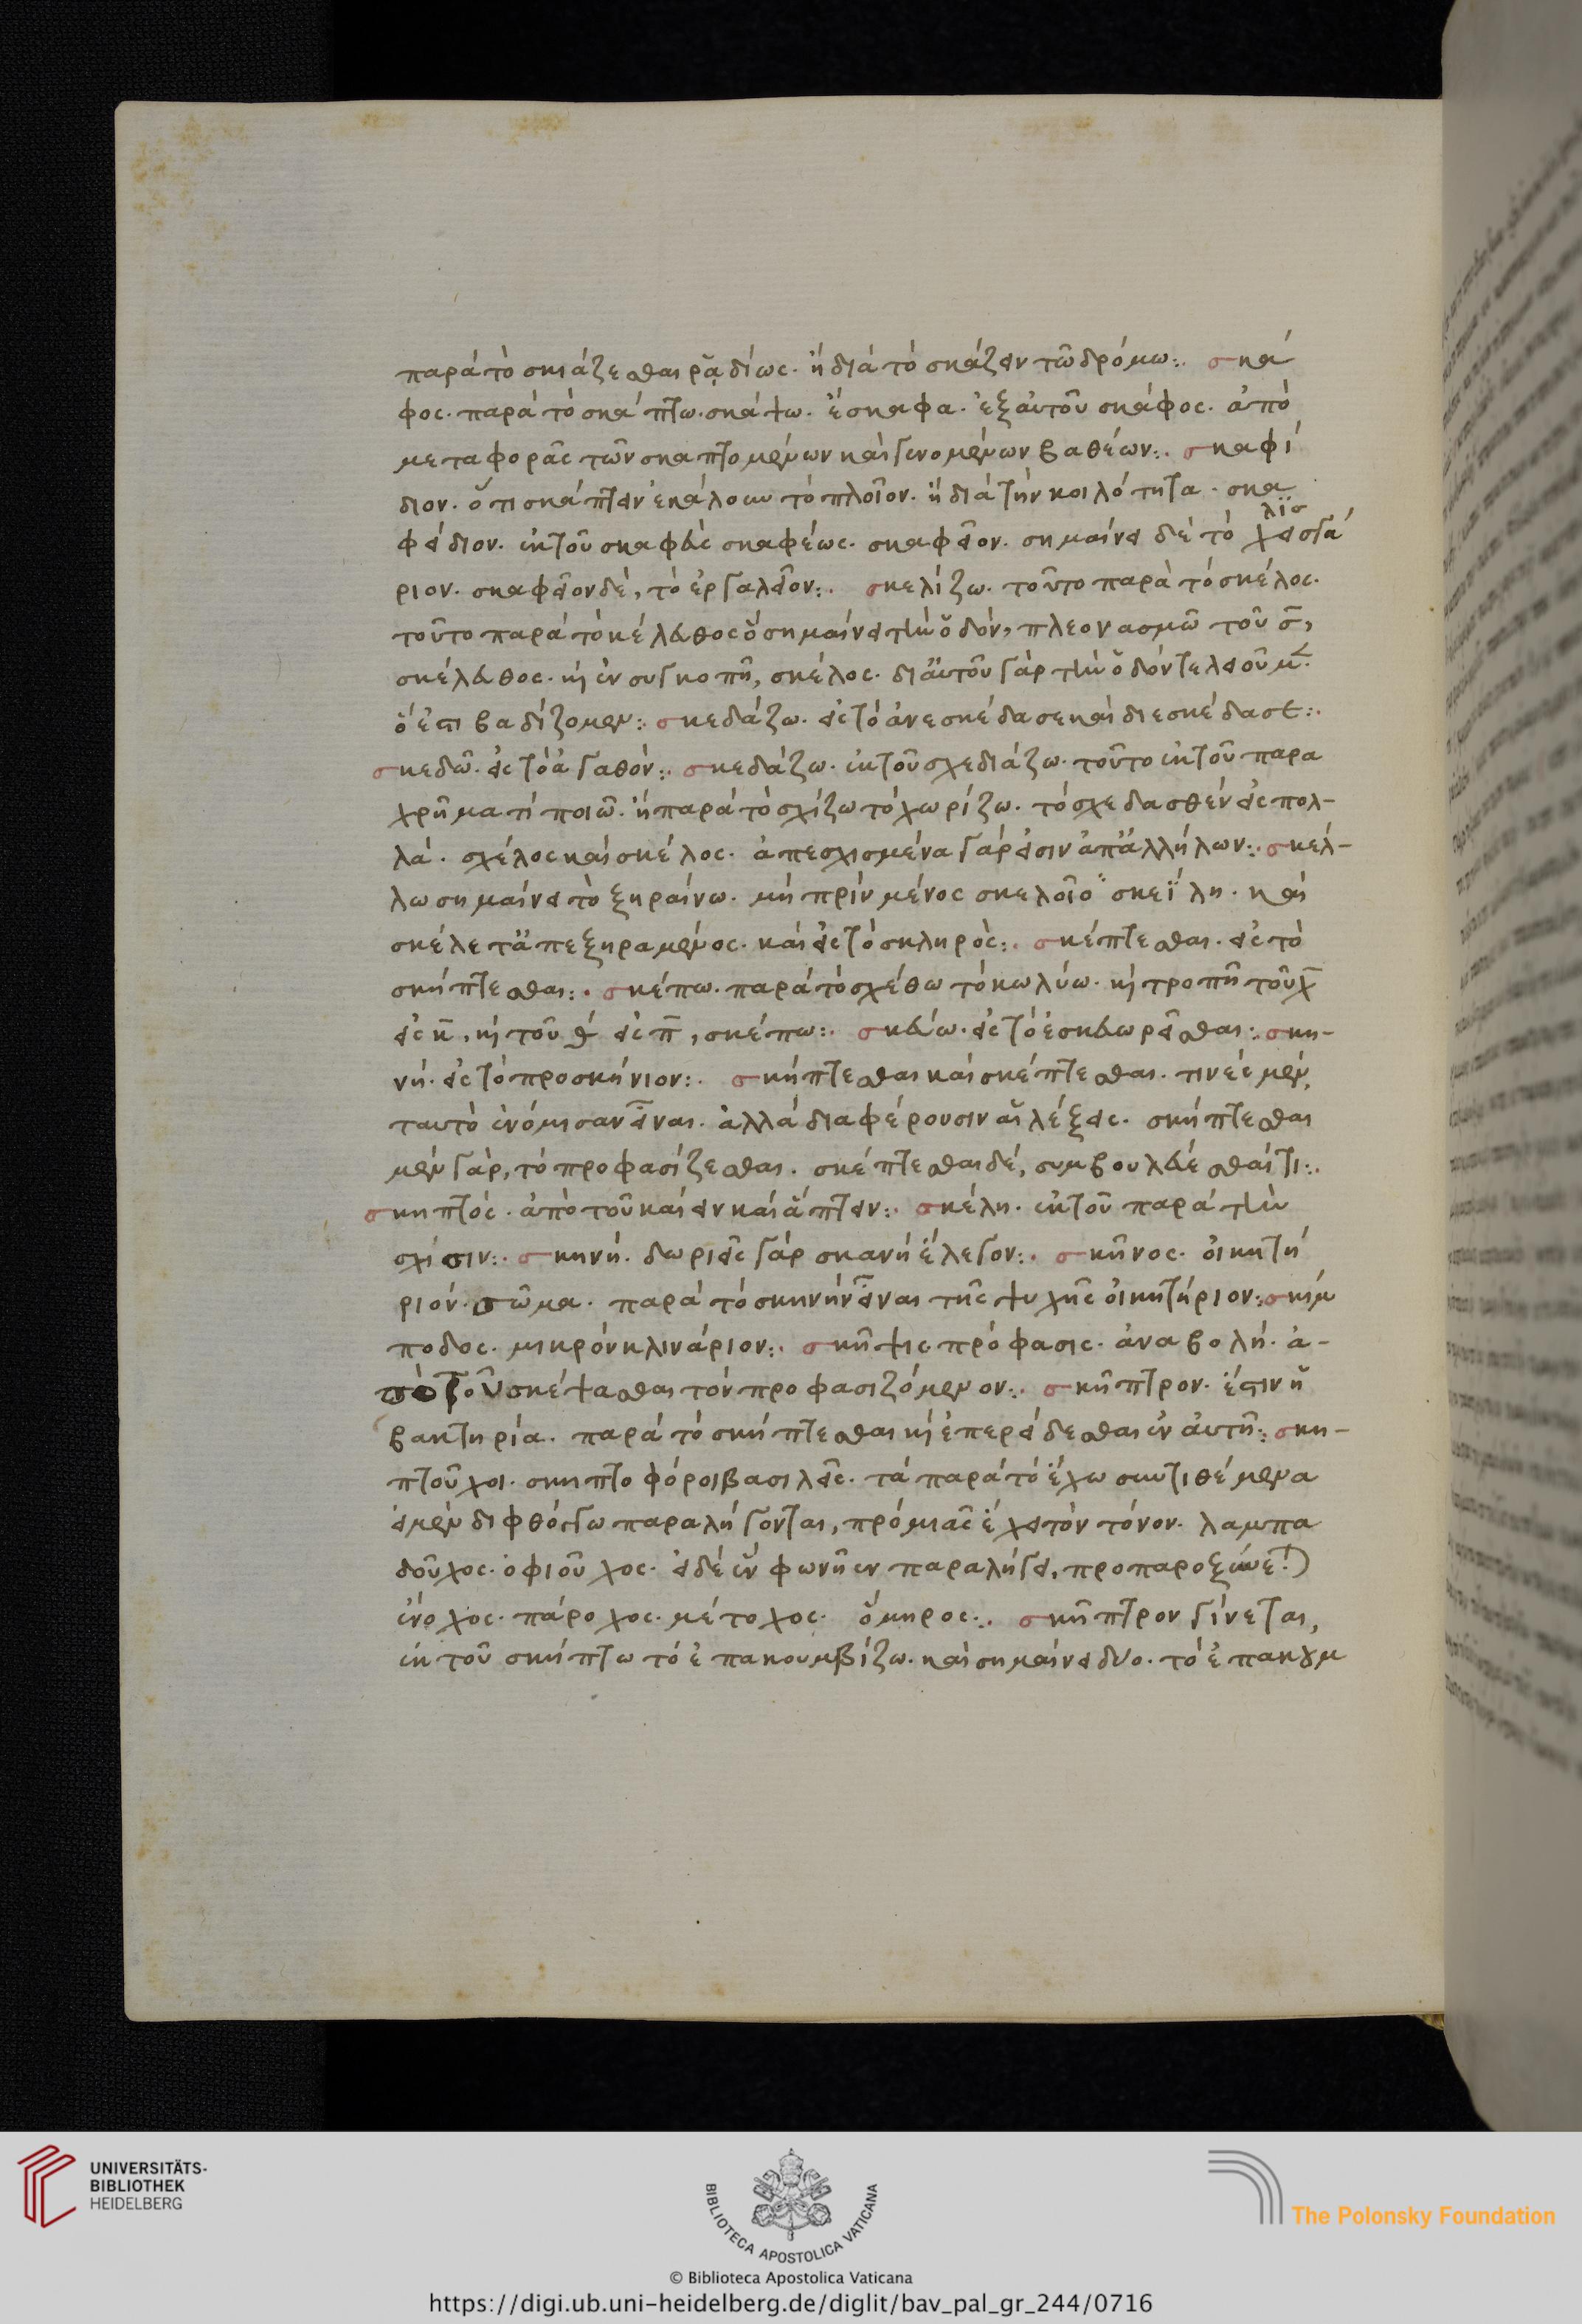 παρὰ τὸ σκιάζεσθαι ῥᾳδίως. ἢ διὰ τὸ σκάζειν τῶ δρόμω:. σκά
φος. παρὰ τὸ σκάπτω. σκάψω. ἔσκαφα. ἐξ αὐτοῦ σκάφος. ἀπὸ
μεταφορᾶς τῶν σκαπτομένων καὶ γινομένων βαθέων:. σκαφί
διον. ὅτι σκάπτειν ἐκάλουν τὸ πλοῖον. ἢ διὰ τὴν κοιλότητα. σκα
λισ
φείδιον. ἐκ τοῦ σκαφεὺς σκαφέως. σκαφεῖον. σημαίνει δὲ τὸ χειστά
ριον. σκαφεῖον δέ, τὸ ἐργαλεῖον:. σκελίζω. τοῦτο παρὰ τὸ σκέλος.
τοῦτο παρὰ τὸ κέλευθος ὃ σημαίνει τὴν ὁδόν, πλεονασμῶ τοῦ σ̅,
σκέλευθος. κὶ ἐν συγκοπῆ, σκέλος. δι' αὐτοῦ γὰρ τὴν ὁδὸν τελειοῦμ.
ὅ ἐστι βαδίζομεν:. σκεδάζω. εἰς τὸ ἀνεσκέδασε καὶ διεσκέδασε:.
σκεδῶ. εἰς τὸ ἀγαθόν:. σκεδάζω. ἐκ τοῦ σχεδιάζω. τοῦτο ἐκ τοῦ παρα
χρῆμα τί ποιῶ. ἢ παρὰ τὸ σχίζω τὸ χωρίζω. τὸ σχεδασθὲν εἰς πολ-
λά. σχέλος καὶ σκέλος. ἀπεσχισμένα γάρ εἰσιν ἀπ' ἀλλήλων:. σκέλ-
λω σημαίνει τὸ ξηραίνω. μὴ πρὶν μένος σκελοῖο" σκεϊλη. καὶ
σκέλετ' ἀπεξηραμένος. καὶ εἰς τὸ σκληρός:. σκέπτεσθαι. εἰς τὸ
σκήπτεσθαι:. σκέπω. παρὰ τὸ σχέθω τὸ κωλύω. κὶ τροπῆ τοῦ χ̅
εἰς κ̅, κὶ τοῦ θ εἰς π̅, σκέπω:. σκεύω. εἰς τὸ ἐσκευωρεῖσθαι:. σκη-
νή. εἰς τὸ προσκήνιον:. σκήπτεσθαι καὶ σκέπτεσθαι. τινὲς μὲν
ταυτὸ ἐνόμισαν εἶναι. ἀλλὰ διαφέρουσιν αἱ λέξεις. σκήπτεσθαι
μὲν γάρ, τὸ προφασίζεσθαι. σκέπτεσθαι δέ, συμβουλεύεσθαί τι:.
σκηπτός. ἀπὸ τοῦ καίειν καὶ ἅπτειν:. σκέλη. ἐκ τοῦ παρὰ τὴν
σχίσιν:. σκηνή. δωριεῖς γὰρ σκανὴ ἔλεγον:. σκῆνος. οἰκητή
ριόν. σῶμα. παρὰ τὸ σκηνὴν εἶναι τῆς ψυχῆς οἰκητήριον:. σκίμ
ποδος. μικρὸν κλινάριον:. σκῆψις πρόφασις. ἀναβολή. ἀ-
πὸ τοῦ σκέψασθαι τὸν προφασιζόμενον:. σκῆπτρον. ἔστιν ἡ
βακτηρία. παρὰ τὸ σκήπτεσθαι κὶ ἐπερείδεσθαι ἐν αὐτῆ:. σκη-
πτοῦχοι. σκηπτοφόροι βασιλεῖς. τὰ παρὰ τὸ ἔχω συντιθέμενα
εἰ μὲν διφθόγγω παραλήγονται, πρὸ μιᾶς ἔχει τὸν τόνον. λαμπα
δοῦχος. ὀφιοῦχος. εἰ δὲ ἓν φωνῆεν παραλήγει, προπαροξύνε.
ἔνοχος. πάροχος. μέτοχος. ὅμηρος:. σκῆπτρον γίνεται,
ἐκ τοῦ σκήπτω τὸ ἐπακουμβίζω. καὶ σημαίνει δύο. τὸ ἐπακουμ
UNIVERSITÄTS-
BIBLIOTHEK
HEIDELBERG
BIBLIOTECA APOSTOLICA VATICANA
The Polonsky Foundation
© Biblioteca Apostolica Vaticana
https://digi.ub.uni-heidelberg.de/diglit/bav_pal_gr_244/0716